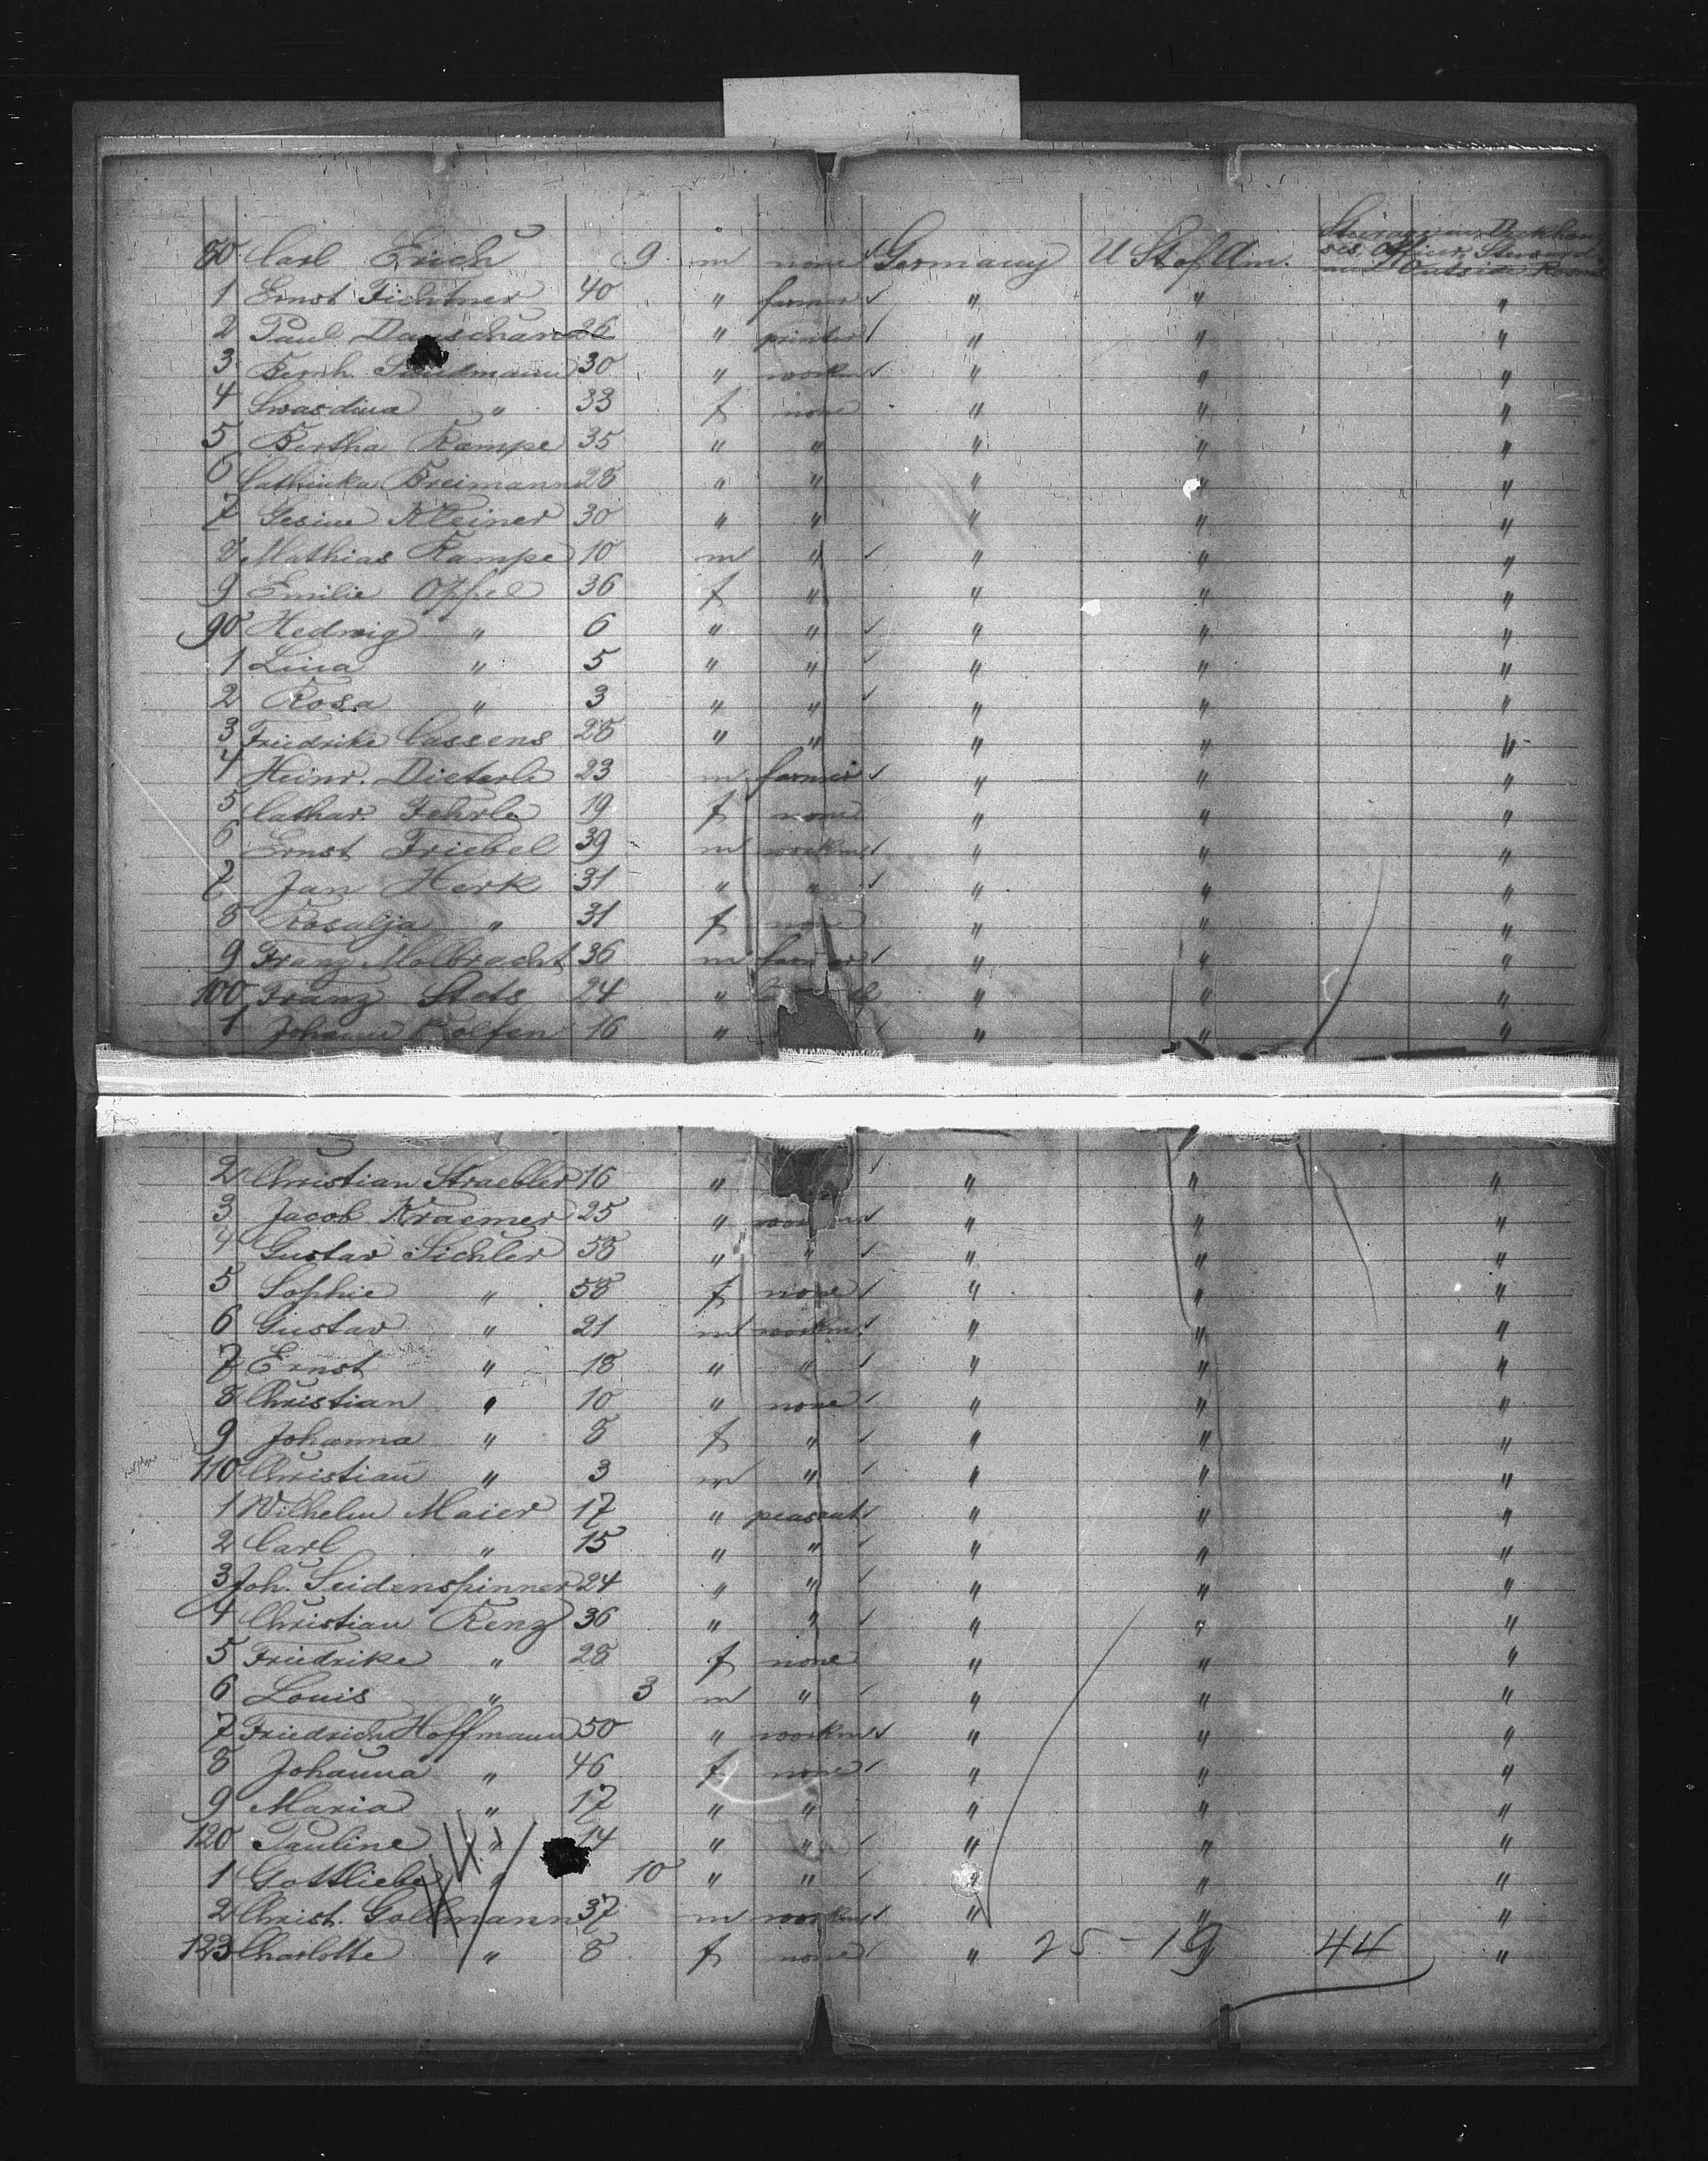 80 Carl Erich 9 m none ✓ Germany U St of Am. Steerage in Deckhou
ses, Officier, Steward
and Outside Rooms
1 Ernst Fichtner 40 " farmer ✓ " " "
2 Paul 26 " printer ✓ " " "
3 Bernh. 30 " workm ✓ " " "
4 " 33 f none " " "
5 Bertha Kampe 35 " " " " "
6 Cathinka Breimann 28 " " " " "
7 Gesine Kleiner 30 " " " " "
8 Mathias Kampe 10 m " ✓ " " "
9 Emilie Oppel 36 f " " " "
90 Hedwig " 6 " " ✓ " " "
1 Lina " 5 " " ✓ " " "
2 Rosa " 3 " " ✓ " " "
3 Friedrike Cassens 28 " " " " "
4 Heinr. Dieterle 23 m farmer ✓ " " "
5 Cathar. Fehrle 19 f none " " "
6 Ernst Friebel 39 m workm ✓ " " "
7 Jan Herk 31 " " ✓ " " "
8 Rosalja " 31 f none " " "
9 Franz Molbracht 36 m farmer ✓ " " "
100 Franz Stots 24 " " " "
1 Johann Rolfen 16 " ✓ " " "
2 Christian Straebler 16 " ✓ " " "
3 Jacob Kraemer 25 " workm ✓ " " "
4 Gustav Sichler 58 " " ✓ " " "
5 Sophie " 58 f none ✓ " " "
6 Gustav " 21 m workm ✓ " " "
7 Ernst " 18 " " ✓ " " "
8 Christian " 10 " none ✓ " " "
9 Johanna " 8 f " ✓ " " "
110 Christian " 3 m " ✓ " " "
1 Wilhelm Maier 17 " peasant ✓ " " "
2 Carl " 15 " " ✓ " " "
3 Joh. Seidenspinner 24 " " ✓ " " "
4 Christian Renz 36 " " ✓ " " "
5 Friedrike " 28 f none " " "
6 Louis " 3 m " ✓ " " "
7 Friedrich Hoffmann 50 " workm ✓ " " "
8 Johanna " 46 f none ✓ " " "
9 Maria " 17 " " " " "
120 Pauline " 14 " " ✓ " " "
1 Gottliebe " 10 " " ✓ " " "
2 Christ. Gollmann 37 m workm ✓ " " "
123 Charlotte " 8 f none ✓ " 25 - 19 44 "